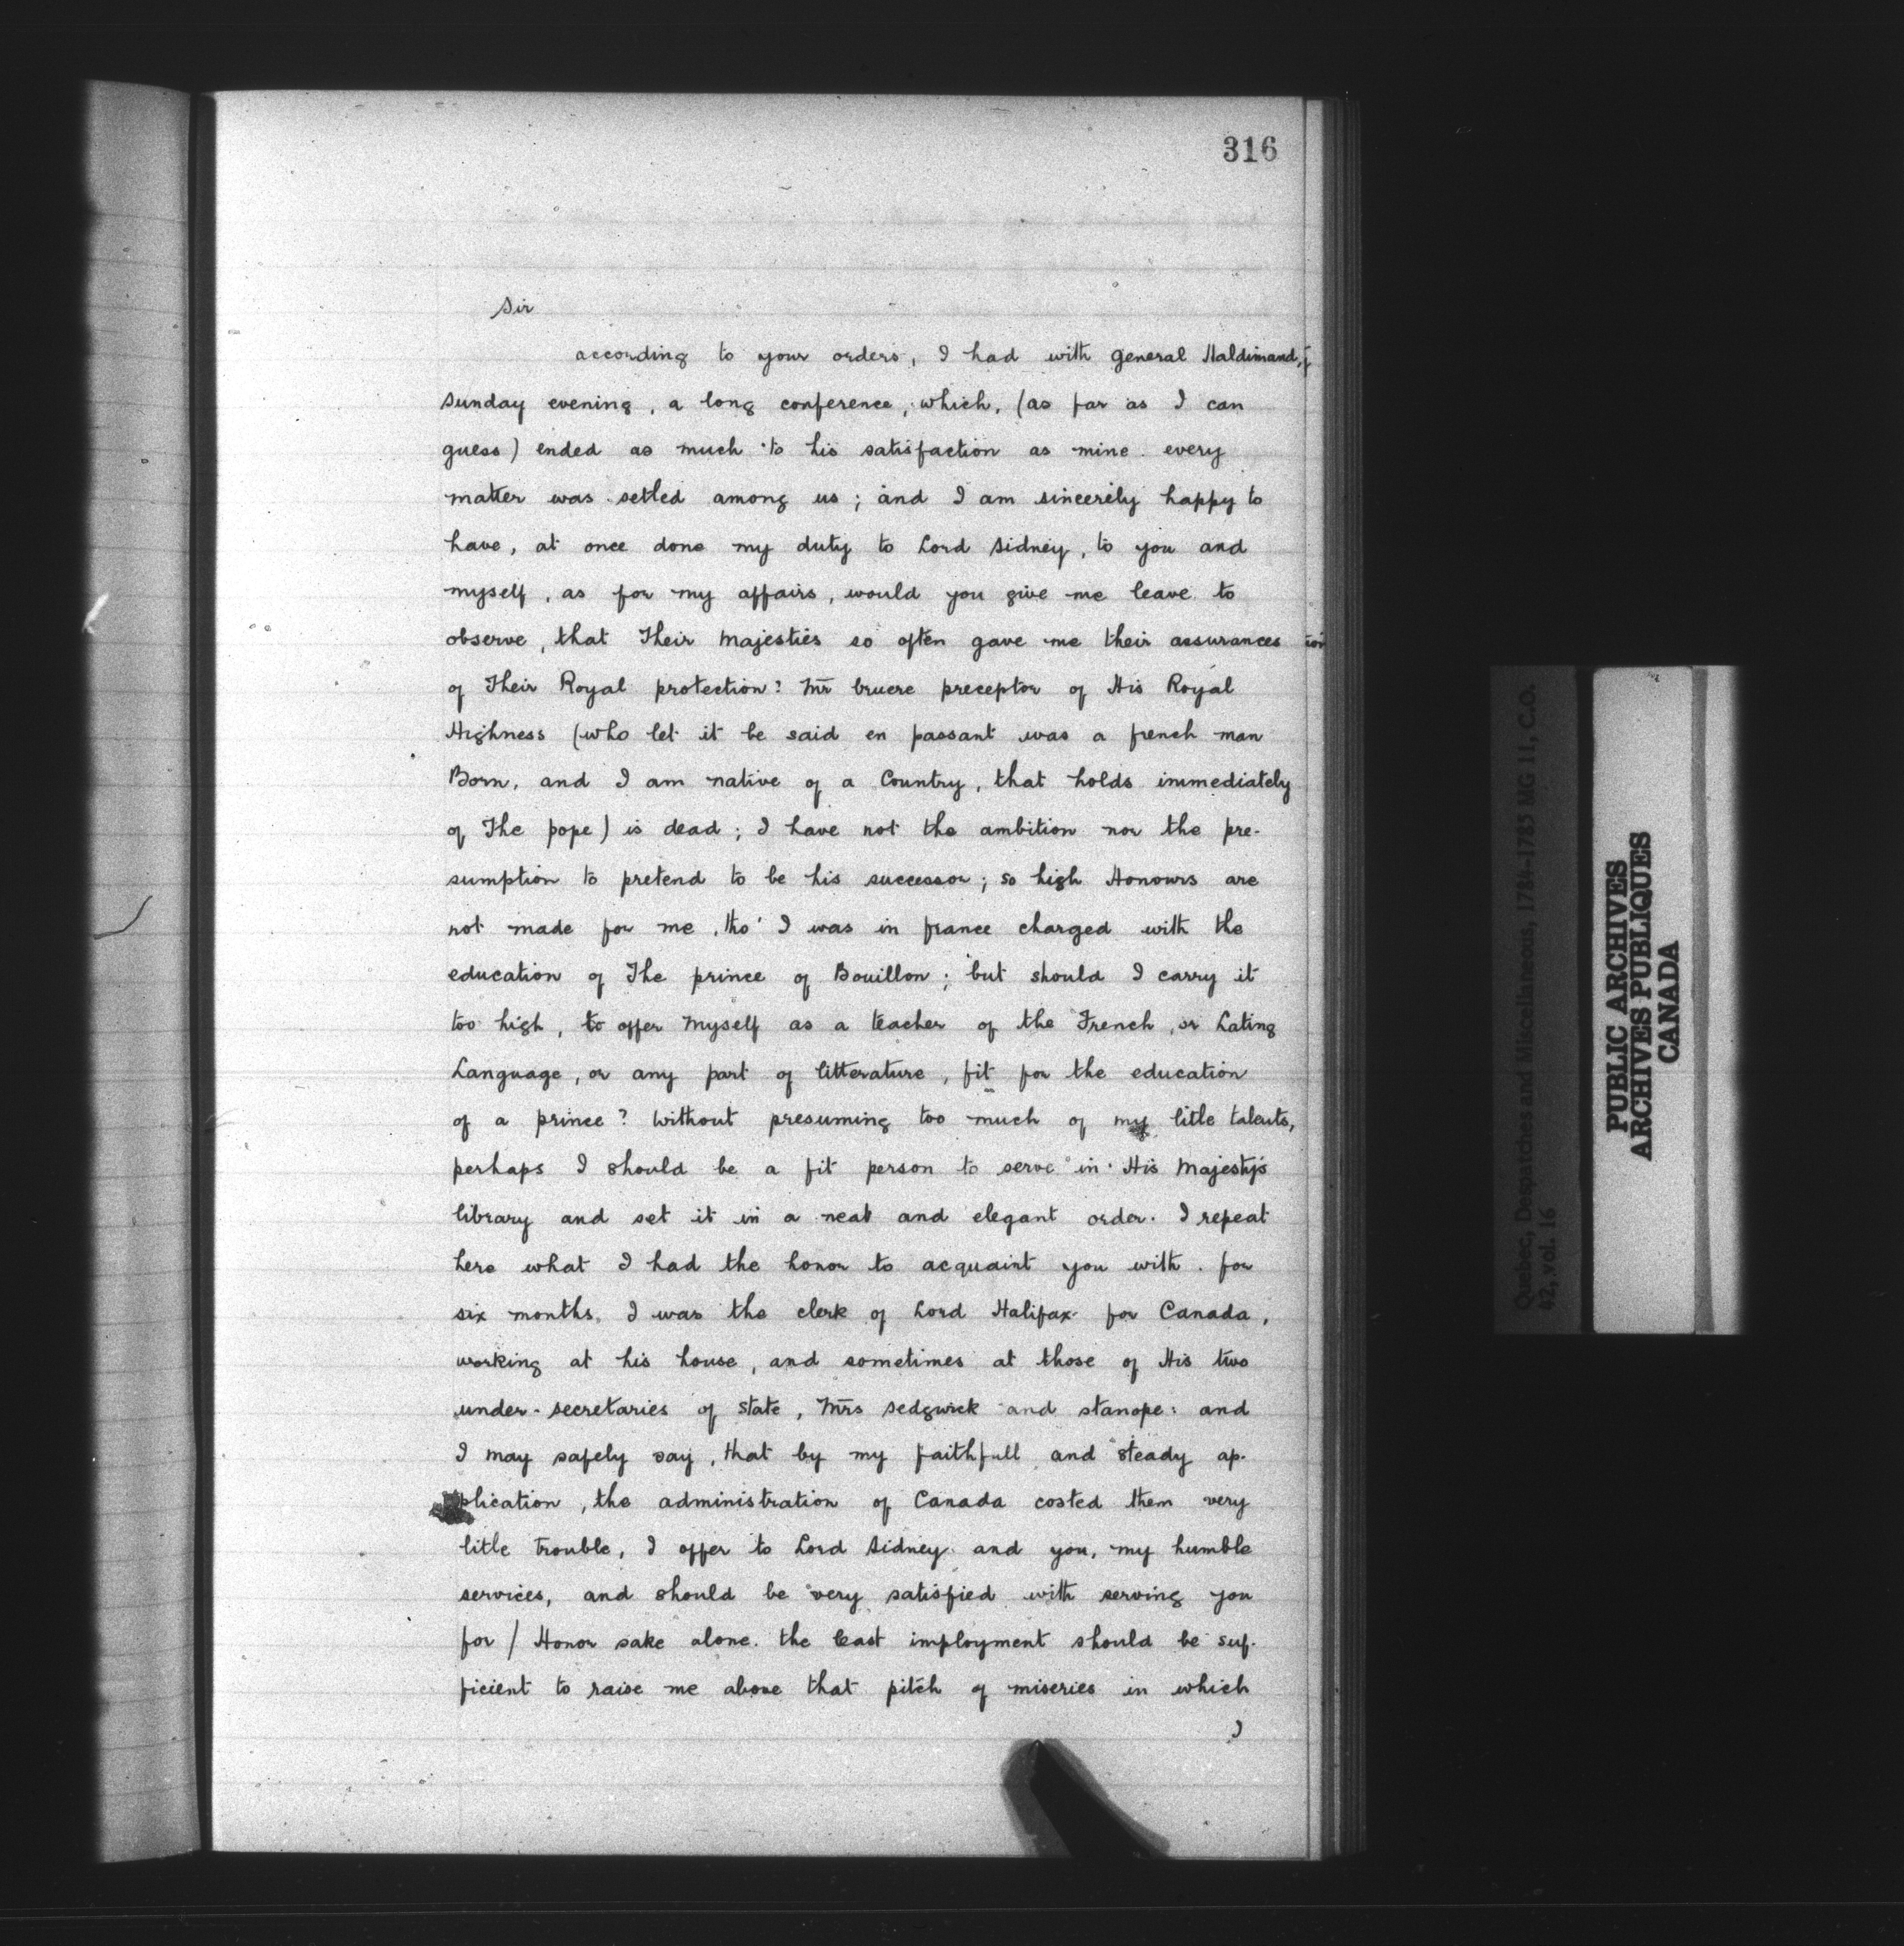 316
Sir
according to your orders, I had with general Haldimand,
sunday evening, a long conference, which, (as far as I can
guess) ended as much to his satisfaction as mine. every
matter was setled among us; and I am sincerely happy to
have, at once done my duty to Lord Sidney, to you and
myself, as for my affairs, would you give me leave to
observe, that Their Majesties so often gave me their assurances
of Their Royal protection? Mr bruere preceptor of His Royal
Highness (who let it be said en passant was a french man
Born, and I am native of a Country, that holds immediately
of The pope) is dead; I have not the ambition nor the pre-
sumption to pretend to be his successor; so high Honours are
not made for me, tho' I was in france charged with the
education of The prince of Bouillon; but should I carry it
too high, to offer myself as a teacher of the French, or Lating
Language, or any part of litterature, fit for the education
of a prince? Without presuming too much of my litle talents,
perhaps I should be a fit person to serve in His Majesty's
library and set it in a neat and elegant order. I repeat
here what I had the honor to acquaint you with. for
six months, I was the clerk of Lord Halifax for Canada,
working at his house, and sometimes at those of His two
under-secretaries of state, Mrs Sedgwick and stanope: and
I may safely say, that by my faithfull and steady ap-
plication, the administration of Canada costed them very
litle trouble, I offer to Lord Sidney and you, my humble
services, and should be very satisfied with serving you
for / Honor sake alone. the least imployment should be suf-
ficient to raise me above that pitch of miseries in which
I
Quebec, Despatches and Miscellaneous, 1784-1785 MG 11, C.O.
42, vol. 16
PUBLIC ARCHIVES
ARCHIVES PUBLIQUES
CANADA